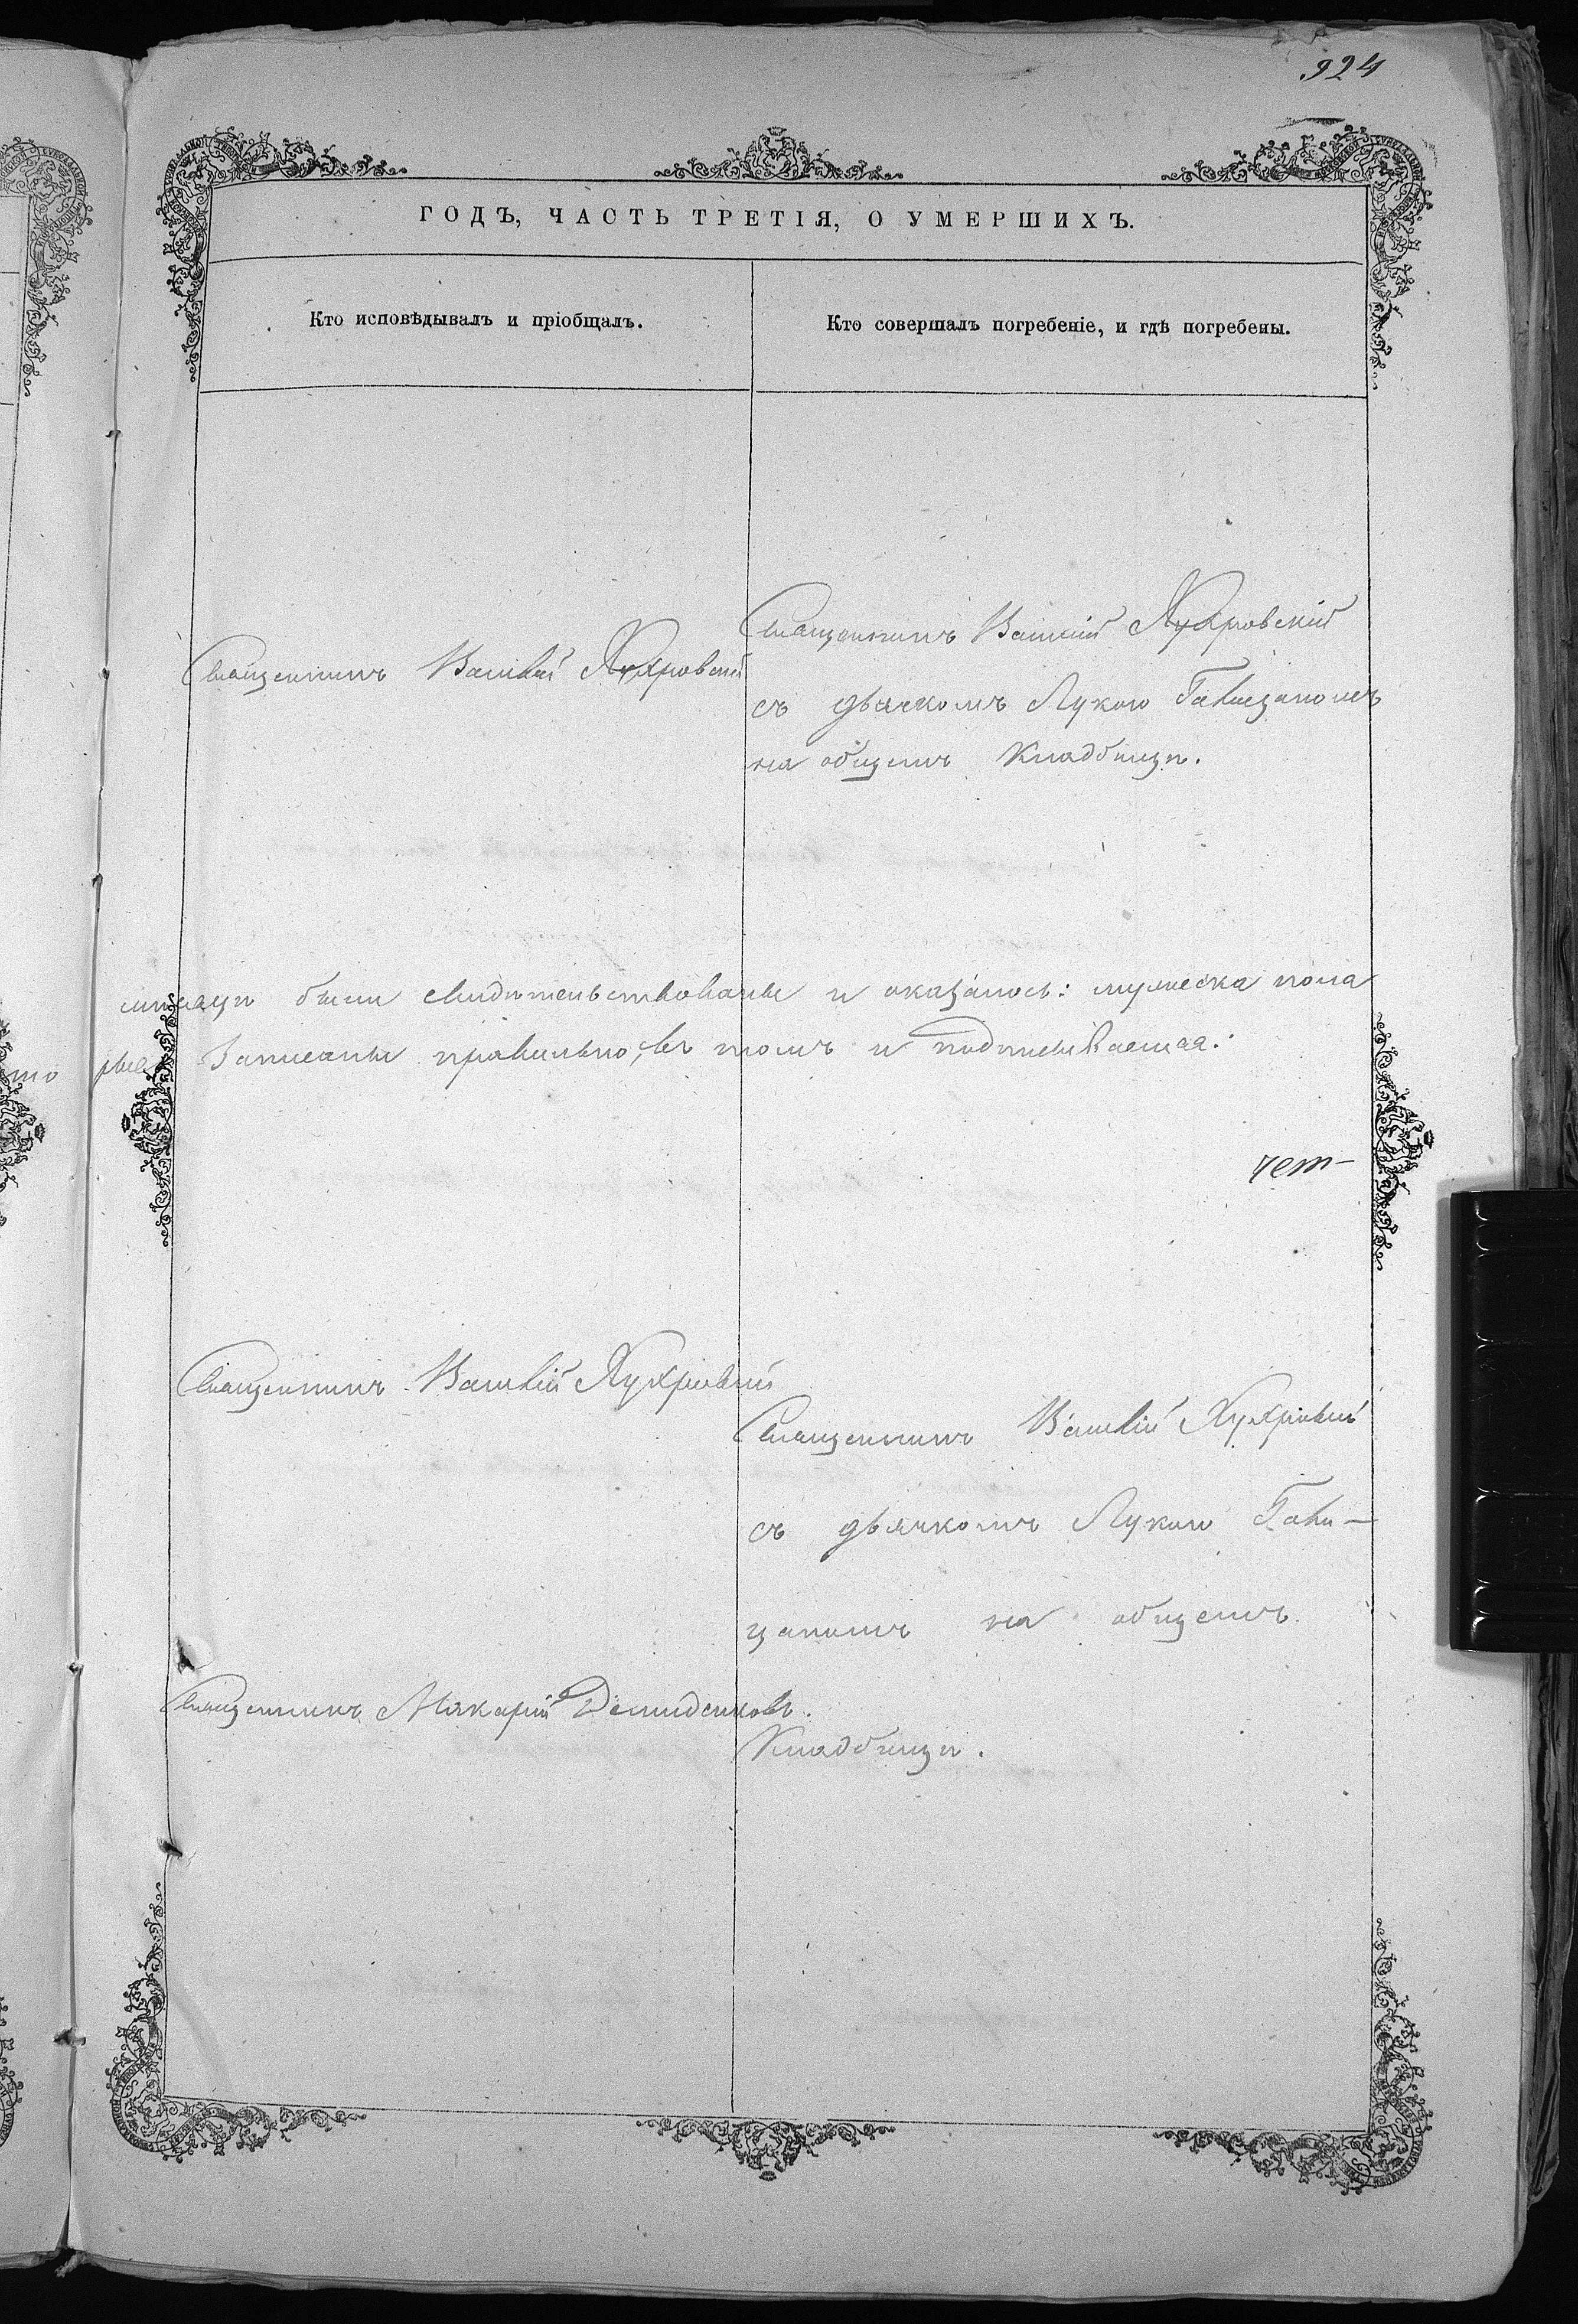 924
ГОДЪ, ЧАСТЬ ТРЕТІЯ, О УМЕРШИХЪ.
Кто исповѣдывалъ и пріобщалъ.
Кто совершалъ погребеніе, и гдѣ погребены.
Священникъ Василій
Священникъ Василій
съ дьячкомъ Лукою
на общемъ Кладбищѣ.
мѣсяцѣ были свидѣтельствованы и оказалось: мужеска пола
записаны правильно, въ томъ и подписываемся:
чет-
Священникъ Василій
Священникъ Василій
съ дьячкомъ Лукою
на общемъ
Священникъ Макарій Демиденковъ.
Кладбищѣ.